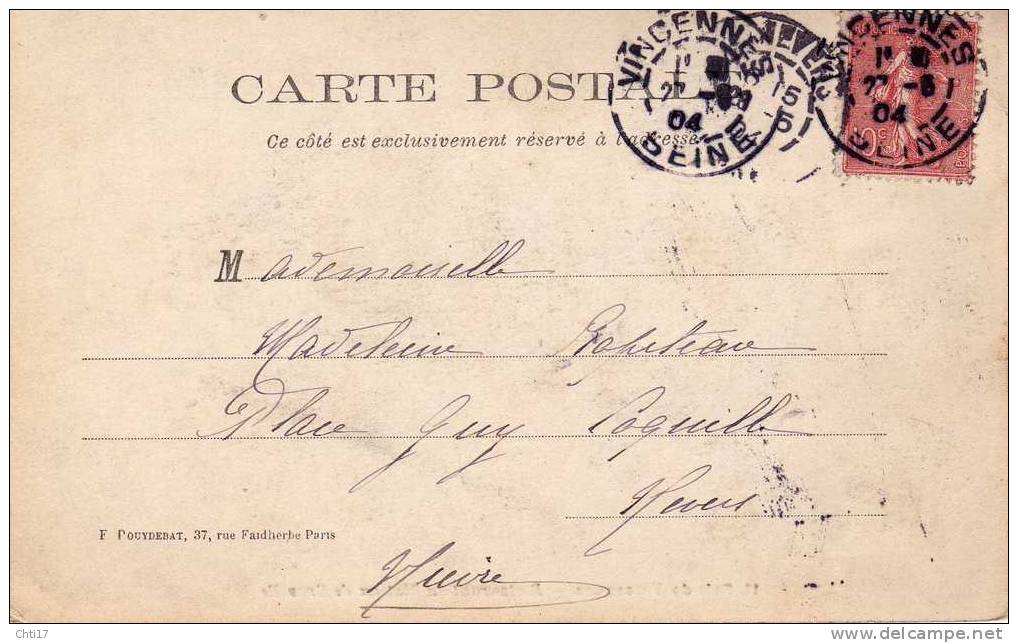 VINCENNES
27 -6
04
SEINE
NEVERS
VINCENNES
27 -6
04
SEINE
10c
CARTE POSTALE
Ce côté est exclusivement réservé à l'adresse
Mademoiselle
Madeleine
Place Guy Coquille
Nevers
F POUYDEBAT, 37, rue Faidherbe Paris
Nièvre
Chti17
www.delcampe.net